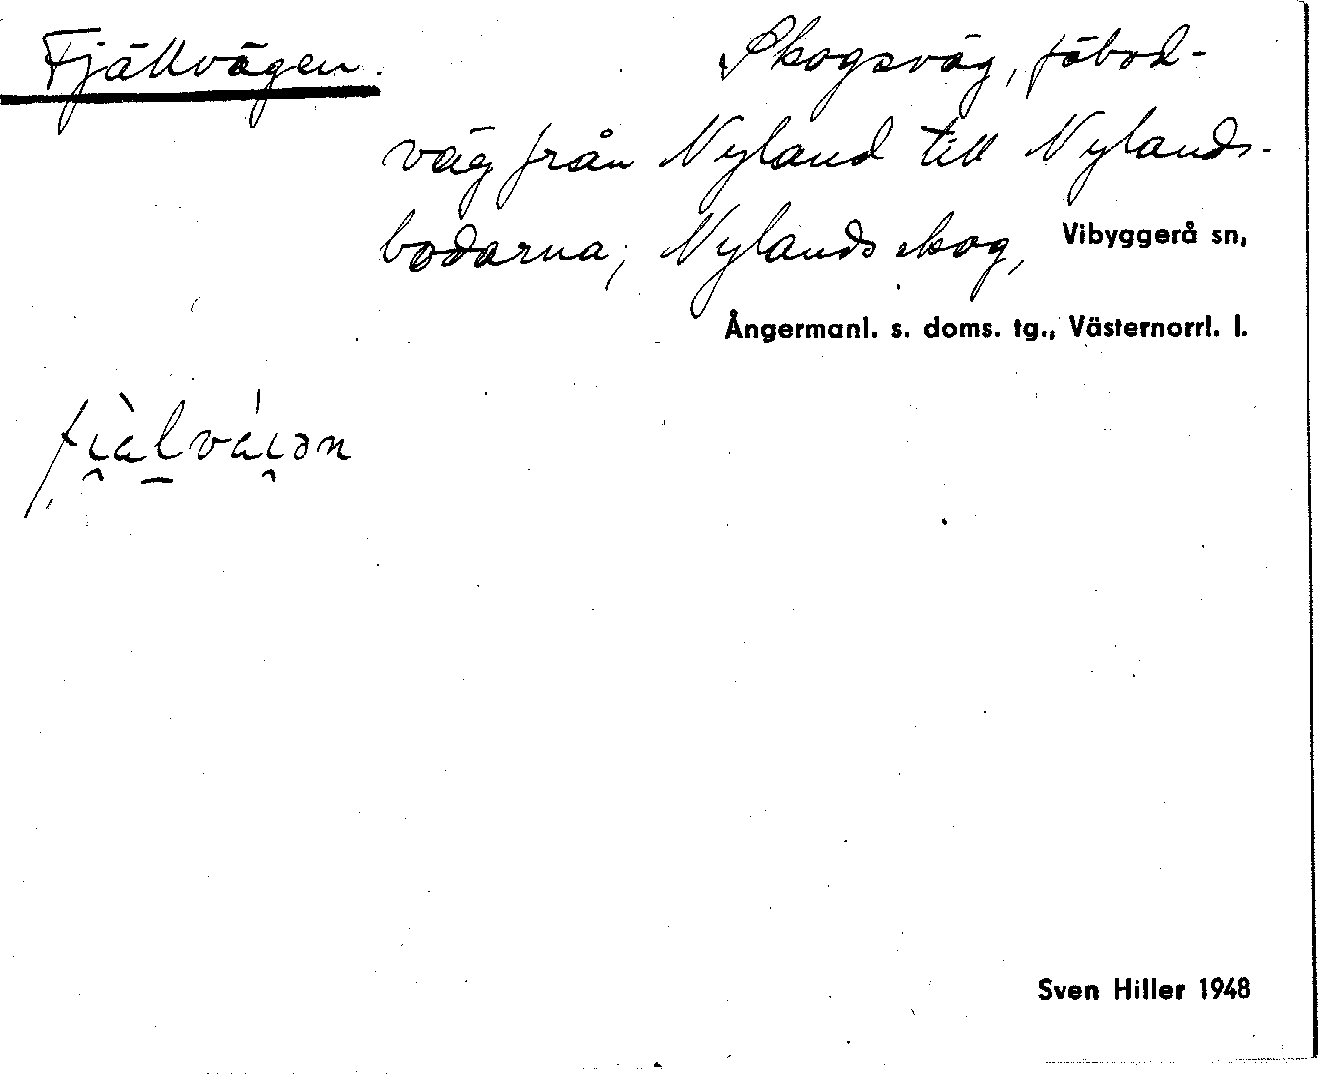 Fjällvägen. Skogsväg, fäbod-
väg från Nyland till Nylands-
bodarna; Nylands skog, Vibyggerå sn,
Ångermanl. s. doms. tg., Västernorrl. l.
Sven Hiller 1948